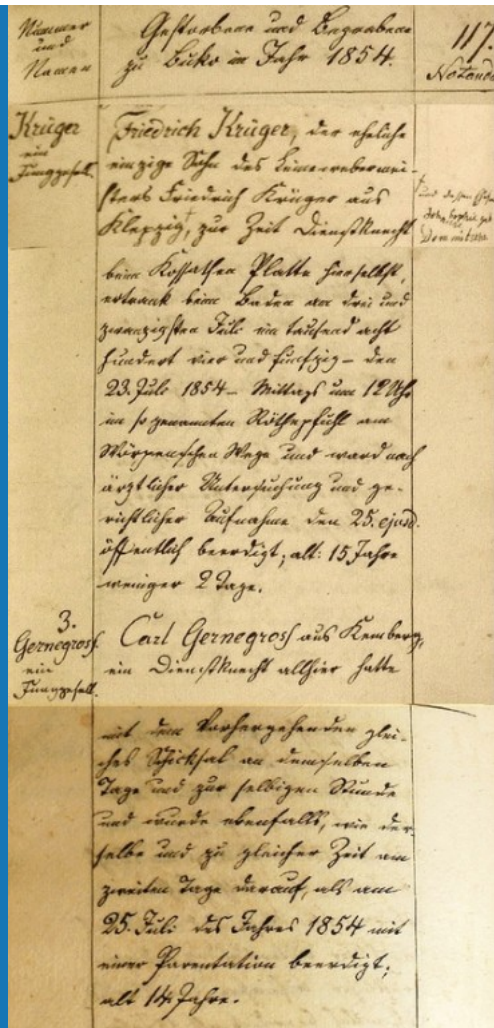 Nummer
und
Namen
Gestorbene und Begrabene
zu Buko im Jahr 1854.
117.
Notanda
Krüger
ein
Junggesell.
Friedrich Krüger, der eheliche
einzige Sohn des Leinewebermei-
sters Friedrich Krüger aus
Klepzig, zur Zeit Dienstknecht
beim Kossathen Platte hierselbst,
ertrank beim Baden am drei und
zwanzigsten Juli ein tausend acht
hundert vier und funfzig – den
23. Juli 1854 – Mittags um 12 Uhr
im so genannten Röthepfuhl am
Wörpenschen Wege und ward nach
ärztlicher Untersuchung und ge-
richtlicher Aufnahme den 25. ejusd.
öffentlich beerdigt; alt: 15 Jahre
weniger 2 Tage.
und dessen
Soph. geb.
3.
Gernegross.
ein
Junggesell.
Carl Gernegross aus Kemberg,
ein Dienstknecht allhier hatte
mit dem Vorhergehenden glei-
ches Schicksal an demselben
Tage und zur selbigen Stunde
und wurde ebenfalls, wie der-
selbe und zu gleicher Zeit am
zweiten Tage darauf, als am
25. Juli des Jahres 1854 mit
einer Parentation beerdigt;
alt 14 Jahre.